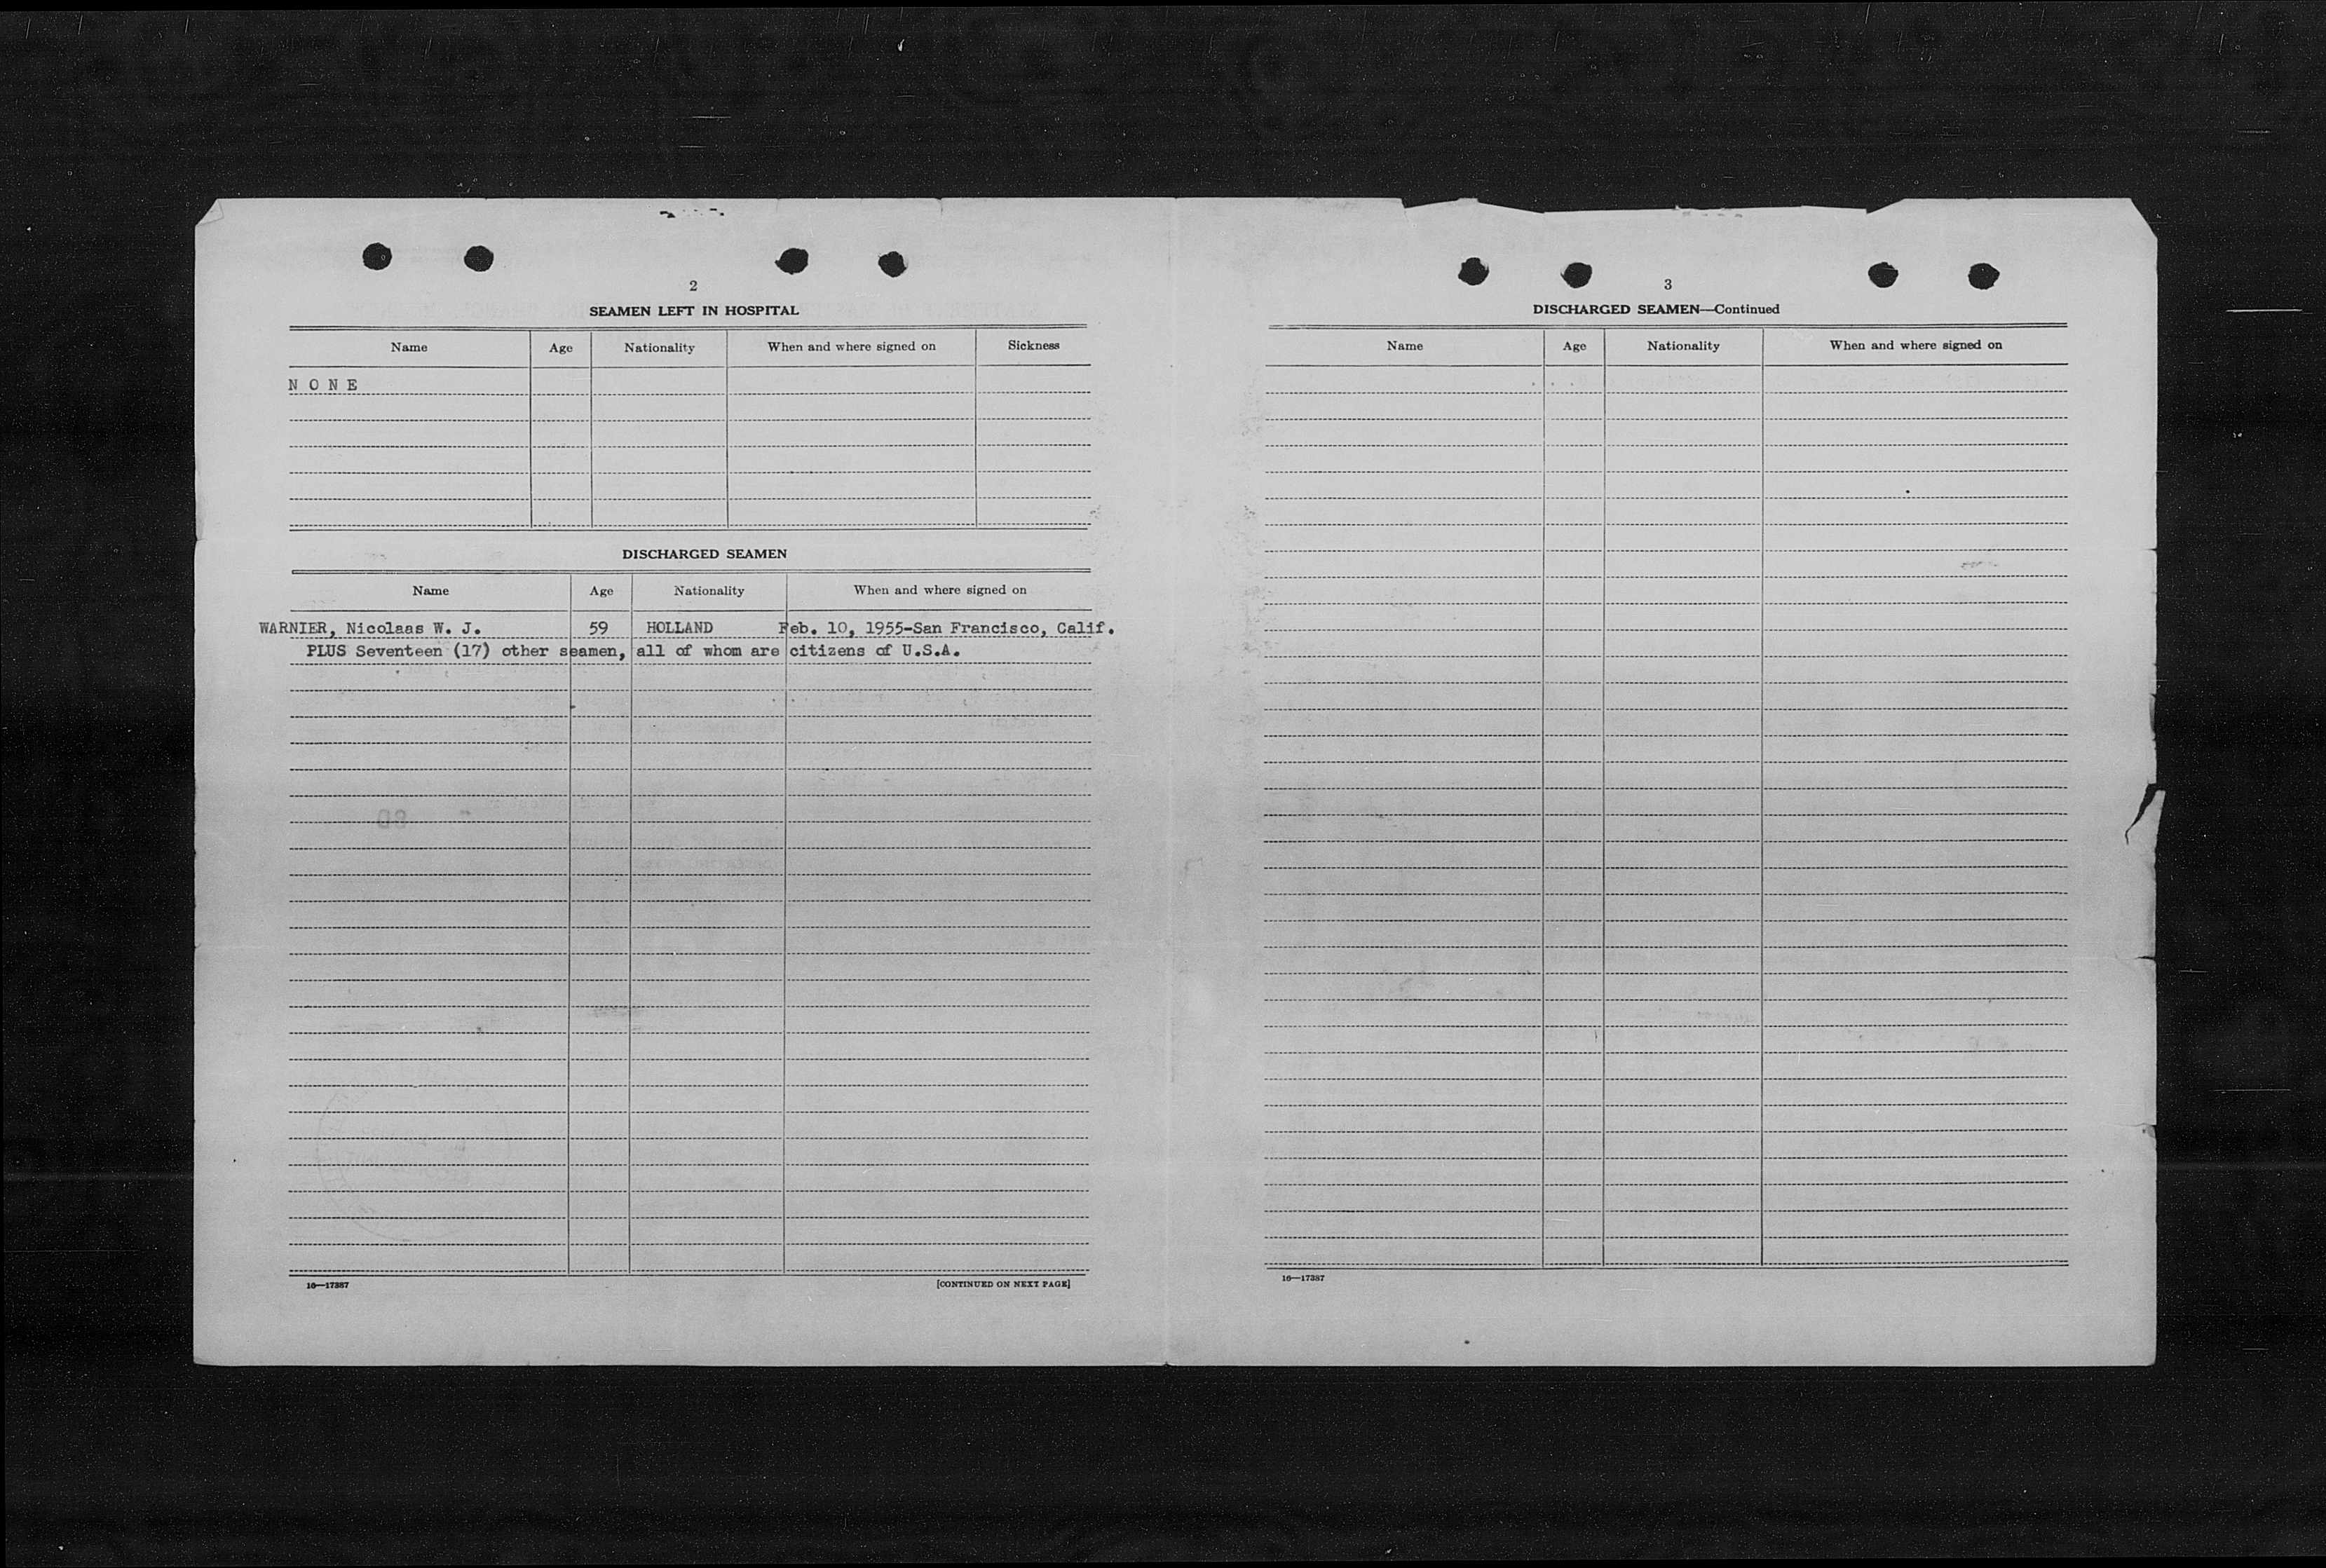 2
SEAMEN LEFT IN HOSPITAL
Name Age Nationality When and where signed on Sickness
N O N E
DISCHARGED SEAMEN
Name Age Nationality When and where signed on
WARNIER, Nicolaas W. J. 59 HOLLAND Feb. 10, 1955-San Francisco, Calif.
PLUS Seventeen (17) other seamen, all of whom are citizens of U.S.A.
16—17387 [CONTINUED ON NEXT PAGE]
3
DISCHARGED SEAMEN—Continued
Name Age Nationality When and where signed on
16—17387